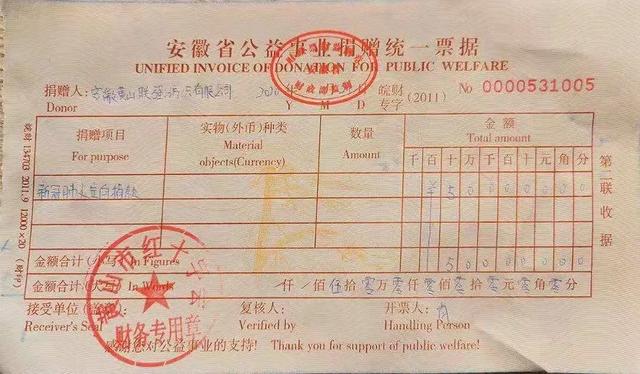 安徽省公益事业捐赠统一票据
UNIFIED INVOICE OF DONATION FOR PUBLIC WELFARE
捐赠人: 安徽黄山联 有限公司 年 皖财 No 0000531005
Donor Y M D 专字 (2011)
捐赠项目 实物(外币)种类 数量 金额
For purpose Material objects(Currency) Amount Total amount
千 百 十 万 千 百 十 元 角 分
新冠肺炎 捐款 ¥ 5 0 0 0 0 0 0 0
金额合计(小写) In Figures 5 0 0 0 0 0 0 0
金额合计(大写) In Words 仟 / 佰 伍 拾 零 万 零 仟 零 佰 零 拾 零 元 零 角 零 分
接受单位(盖章): 复核人: 开票人:
Receiver's Seal Verified by Handling Person
感谢您对公益事业的支持! Thank you for support of public welfare!
第二联 收据
财务专用章